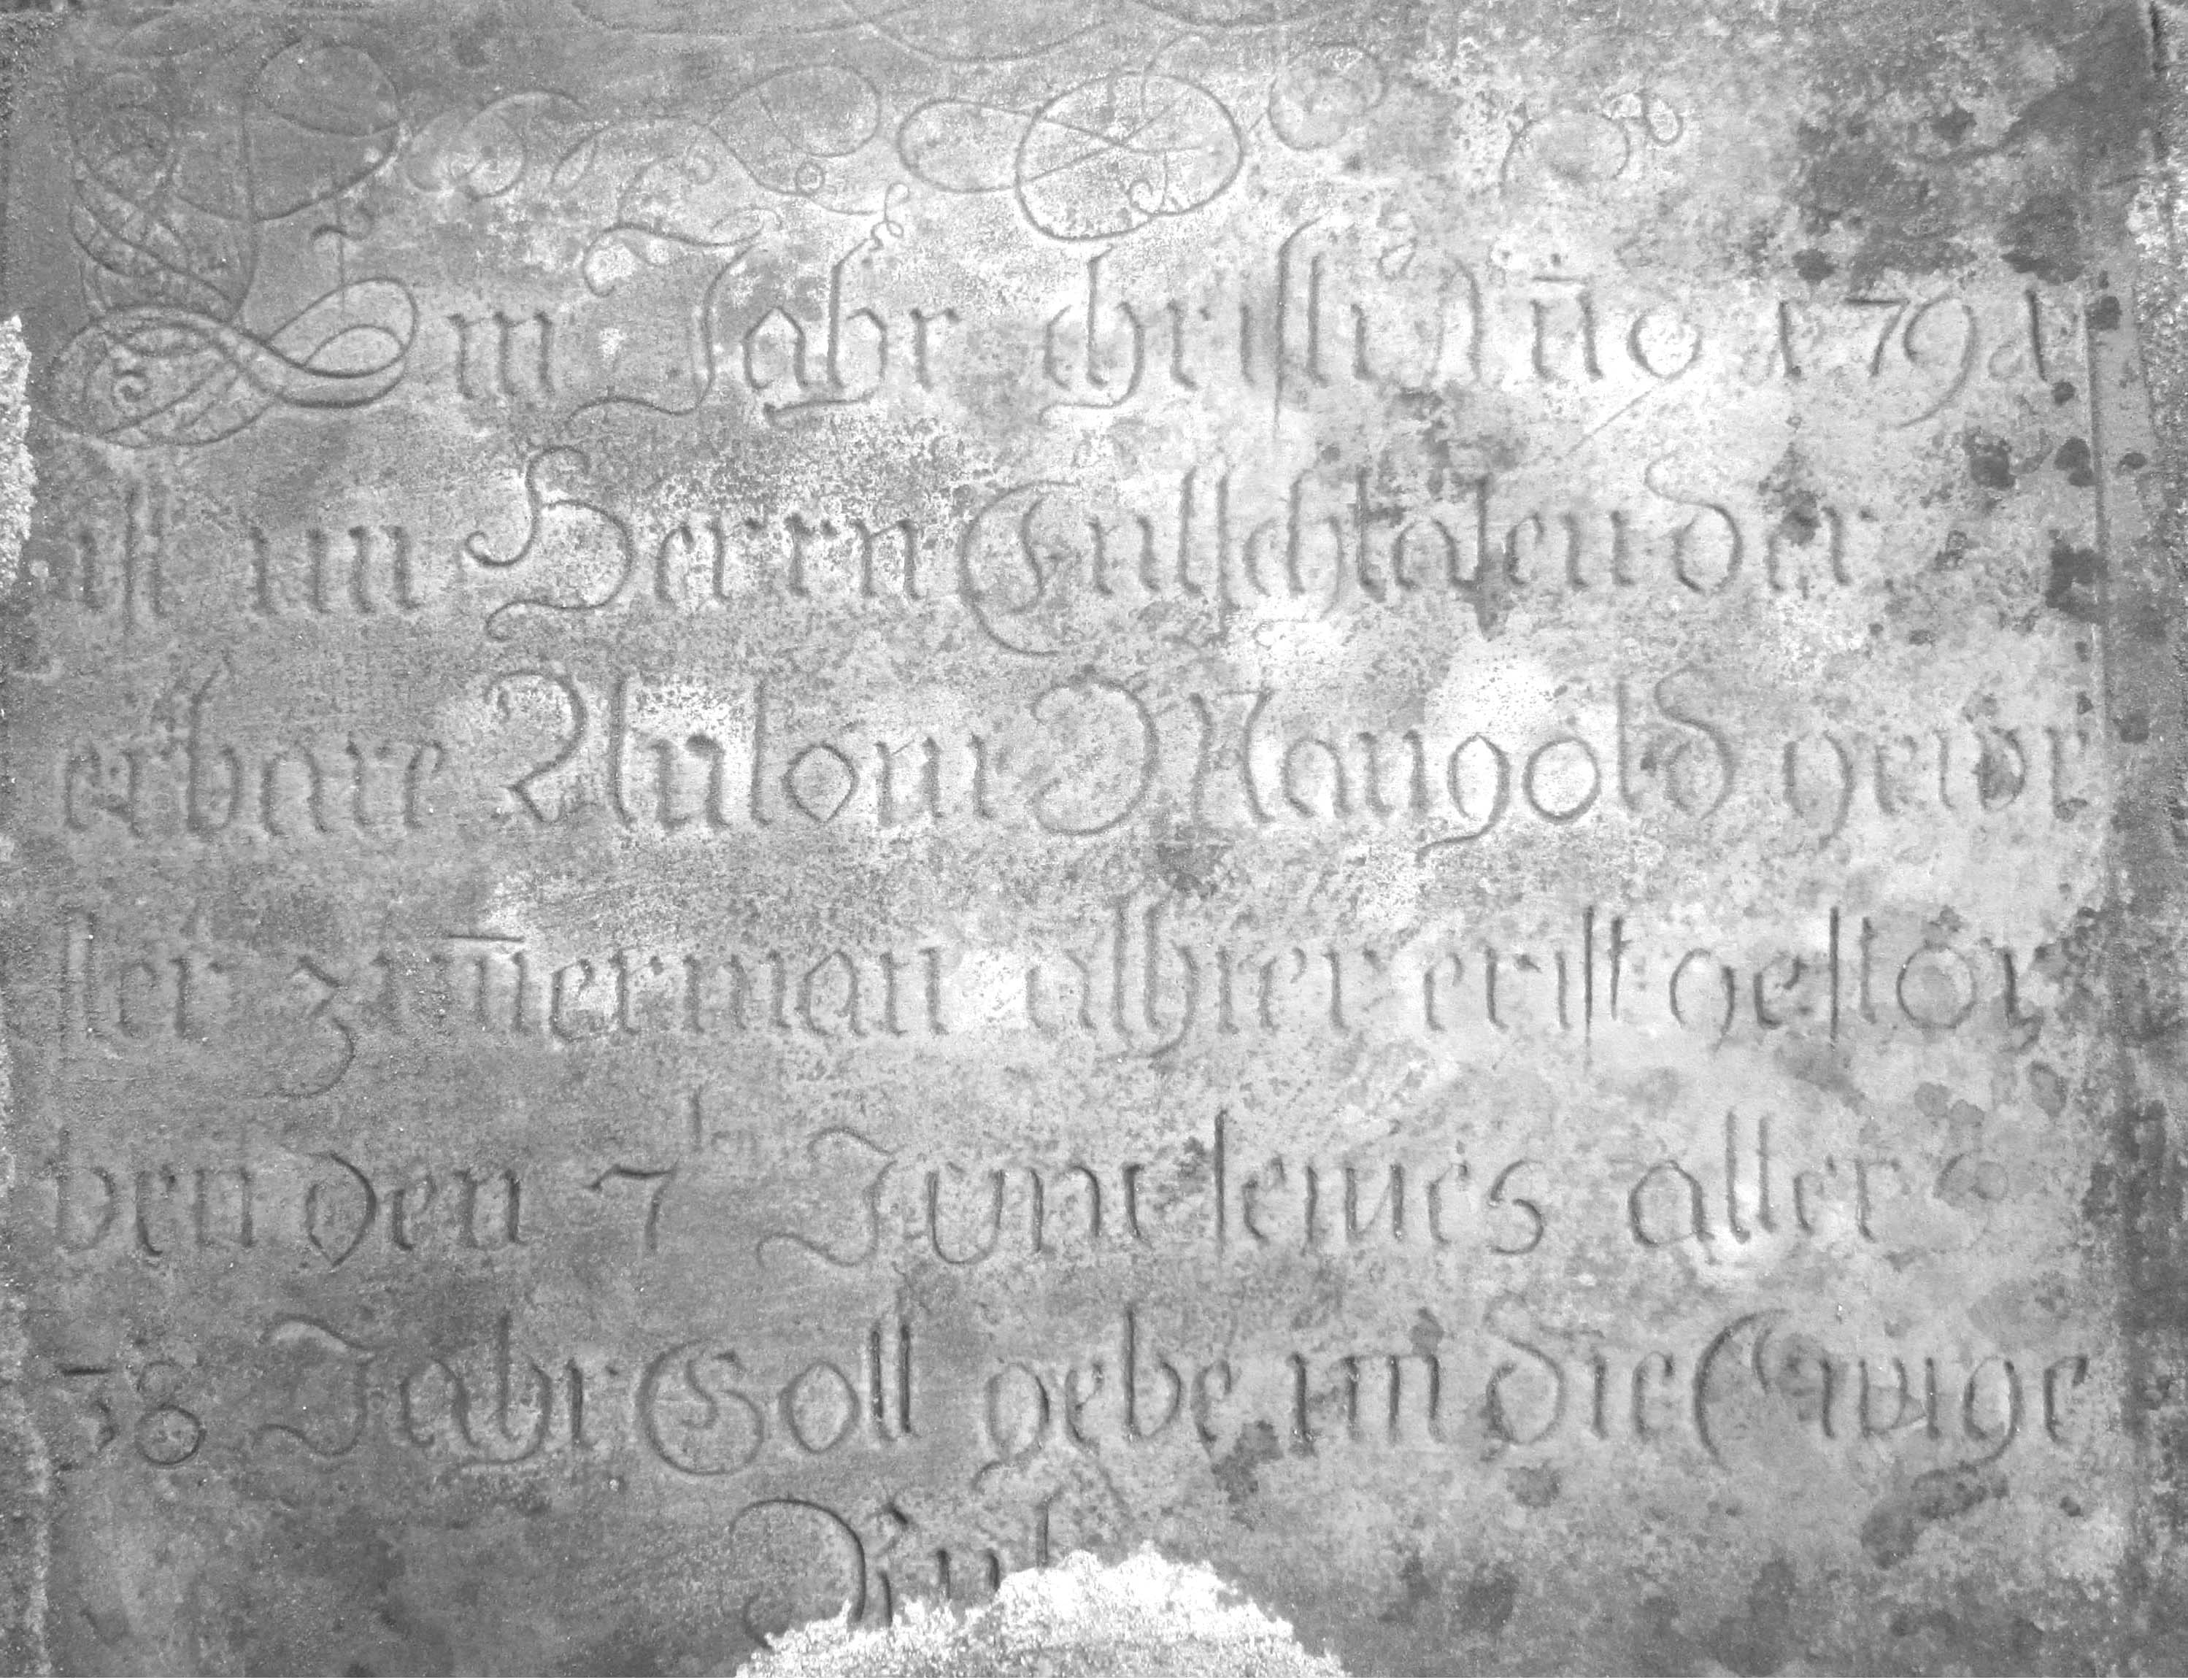 Im Jahr christi Año 1791
ist im Herrn Entschlafen der
erbare Antoni Mangold gewe
ster zim̄erman alhier er ist gestor
ben den 7ten Juni seines alter
38 Jahr Gott gebe im die Ewige
Ruh